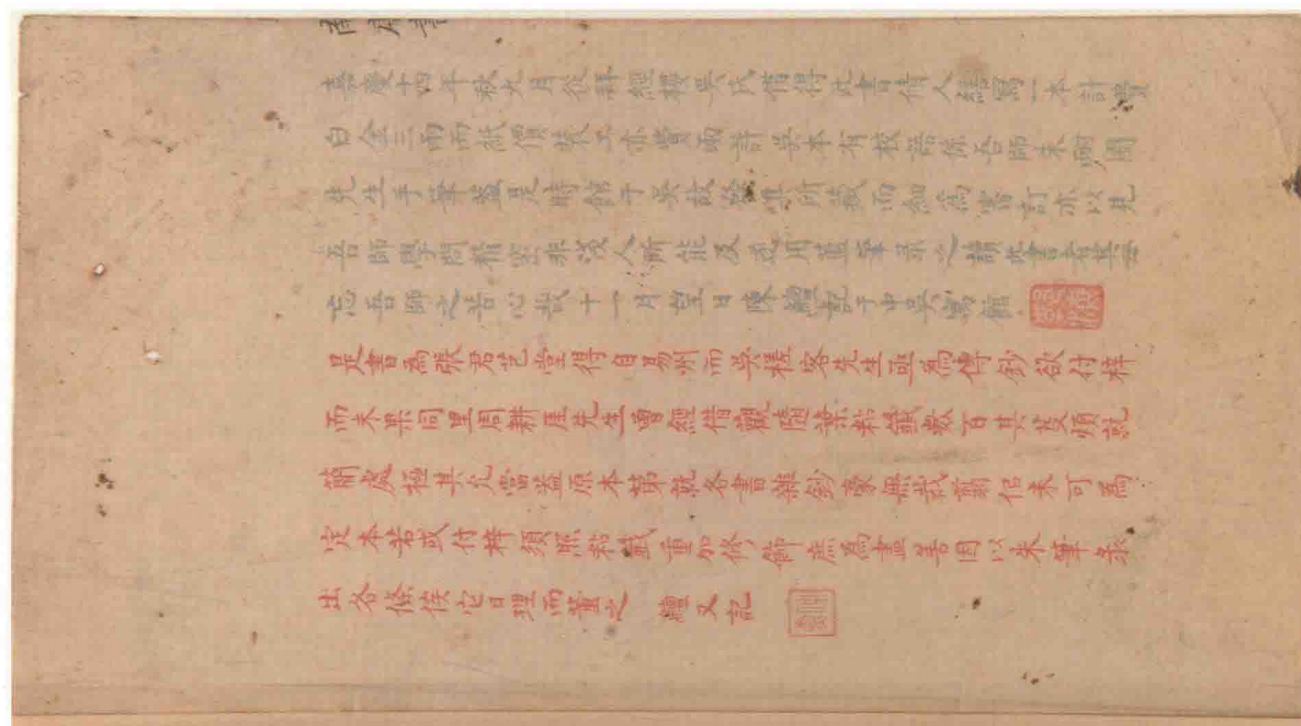 嘉慶十四年秋九月從拜經樓吳氏借得此書倩人繕寫一本計費
白金三兩而紙價裝工亦費兩許吳本有校語係吾師朱酣圃
先生手筆蓋是時館于吳故發所藏而細為審訂亦以見
吾師學問精密非淺人所能及遂用藍筆录之讀此書者其毋
忘吾師之苦心哉十一月望日陳鱣記于中吳寓館
是書為張君芑堂得自易州而吳槎客先生亟為傳鈔欲付梓
而未果同里周耕厓先生曾經借觀隨葉粘籤數百其芟煩就
簡處極其允當蓋原本第就各書雜鈔豪無裁翦佀未可為
定本若或付梓須照粘籤重加修飾庶為盡善因以朱筆录
出各條俟它日理而董之 鱣又記